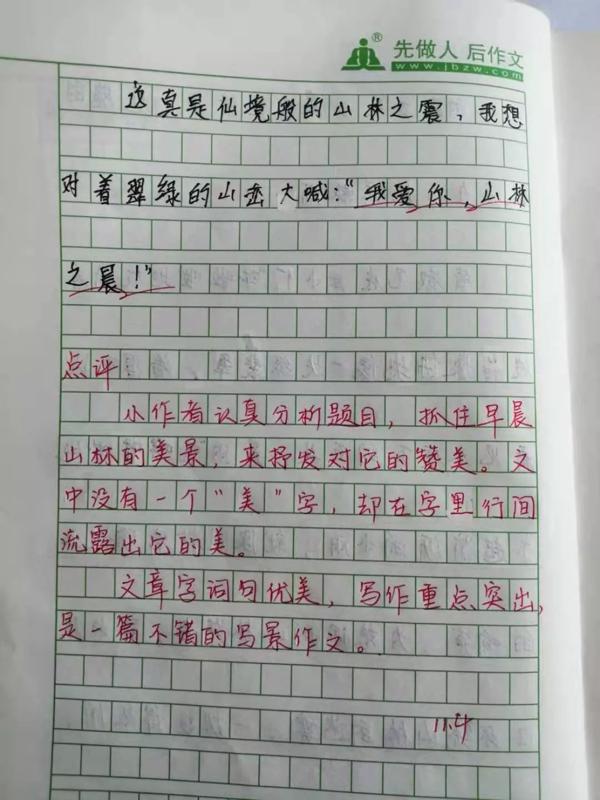 先做人 后作文
www.jbzw.com
这真是仙境般的山林之震，我想
对着翠绿的山峦大喊："我爱你，山林
之晨！"
点评
小作者认真分析题目，抓住早晨
山林的美景，来抒发对它的赞美。文
中没有一个"美"字，却在字里行间
流露出它的美。
文章字词句优美，写作重点突出，
是一篇不错的写景作文。
11.4